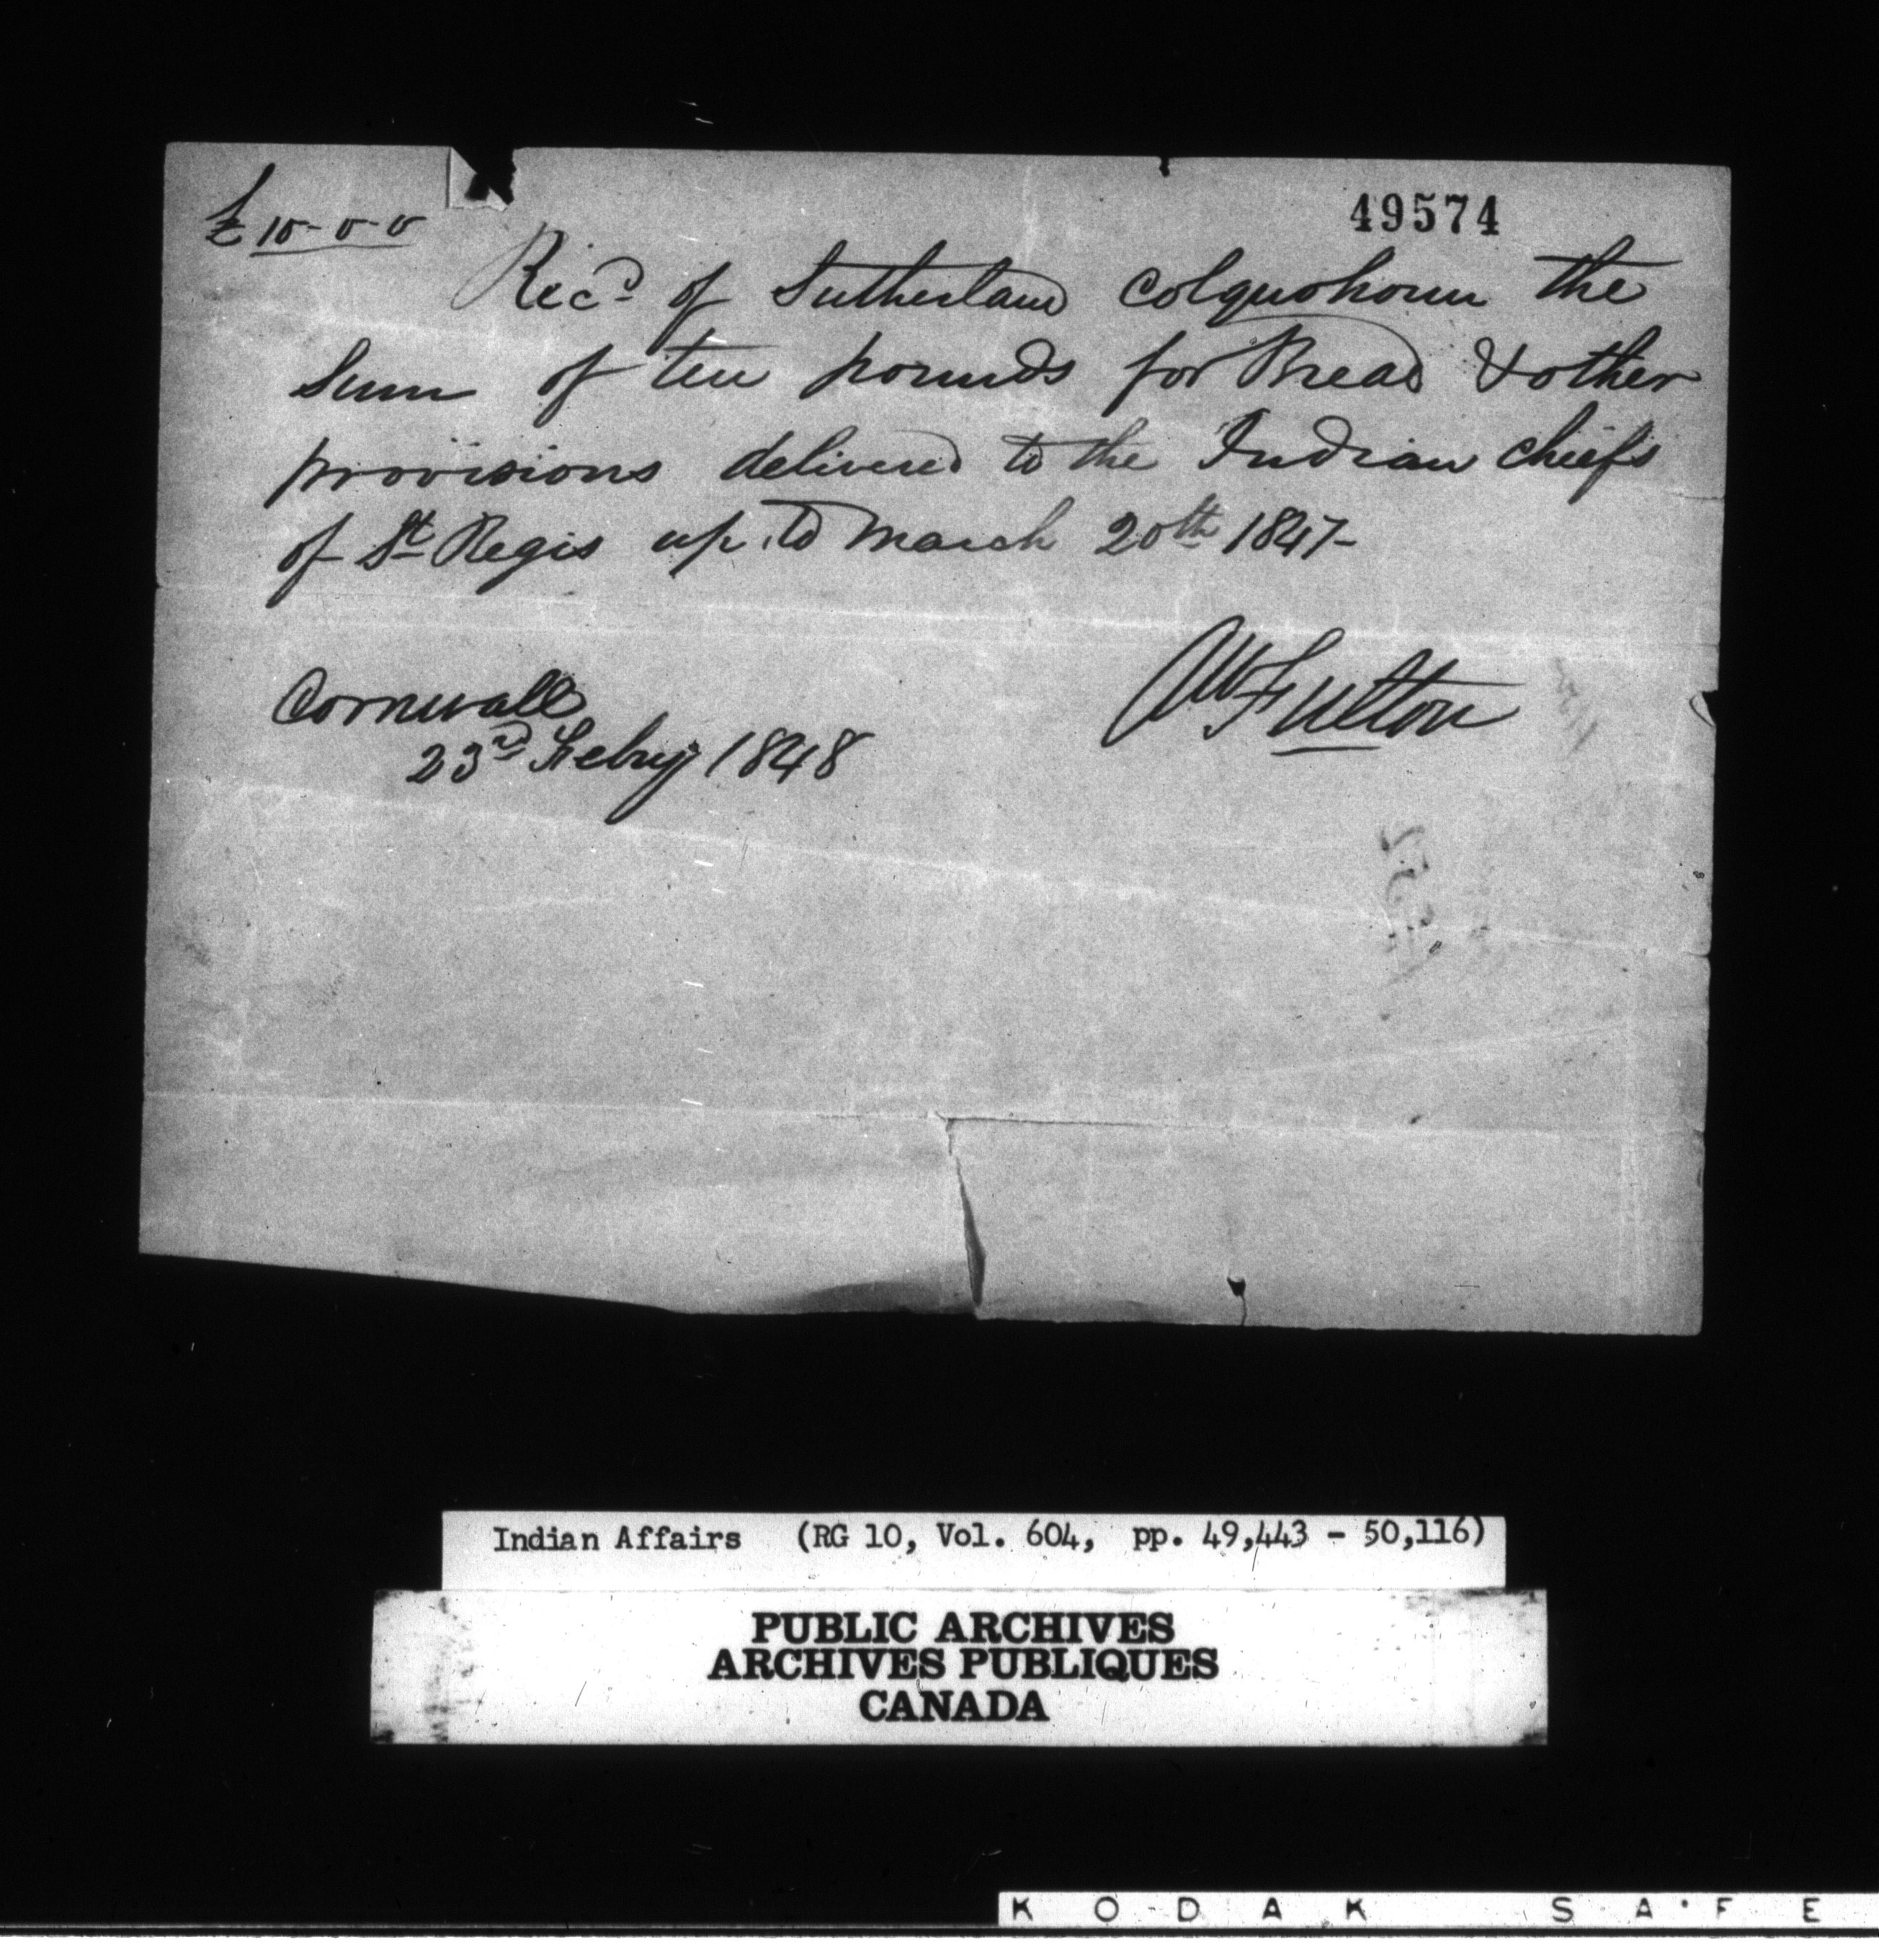 49574
£10-0-0
Recd of Sutherland Colquohoun the
Sum of ten pounds for Bread & other
provisions delivered to the Indian chiefs
of St Regis up to March 20th 1847-
AW Fulton
Cornwall
23rd Feby 1848
Indian Affairs (RG 10, Vol. 604, pp. 49,443 - 50,116)
PUBLIC ARCHIVES
ARCHIVES PUBLIQUES
CANADA
KODAK SAFE